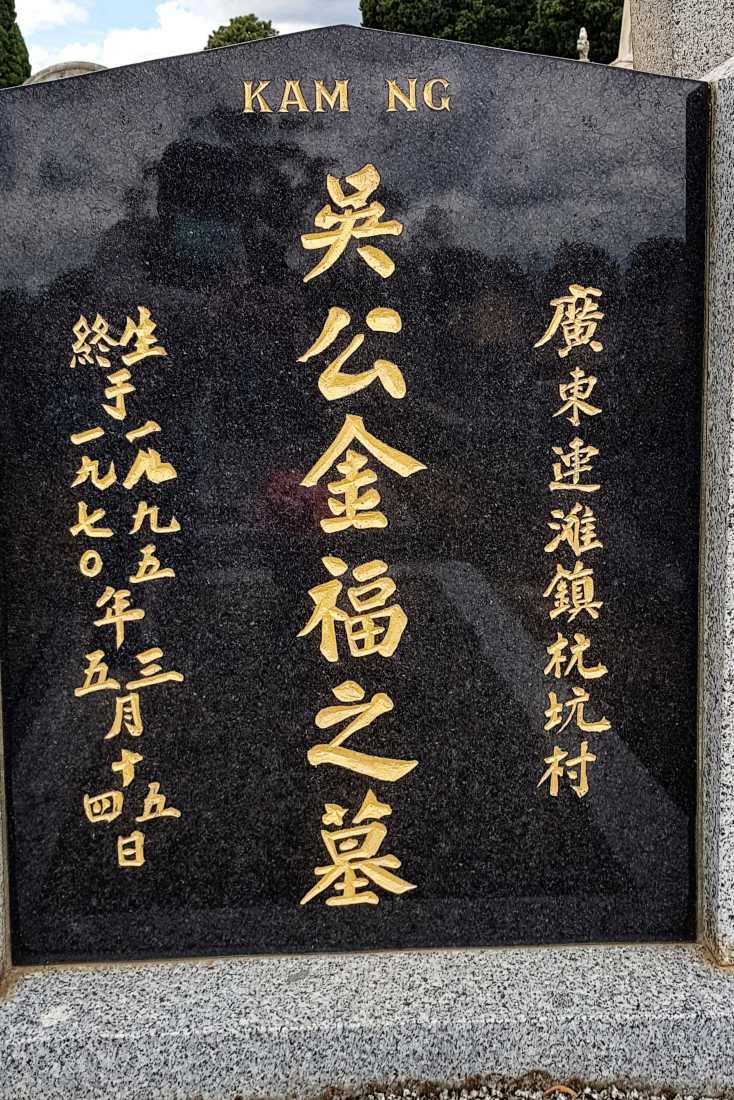 KAM NG
廣東連滩鎮杭坑村
吳公金福之墓
生于一八九五年三月十五日
終于一九七〇年五月十四日